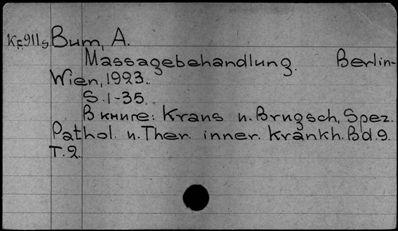 Kf911s Bum, A.
Massagebehandlung. Berlin-
Wien, 1923.
S. 1-35.
В книге: Kraus u. Brugsch, Spez.
Pathol. u. Ther. inner. Krankh. Bd. 9.
T. 2.